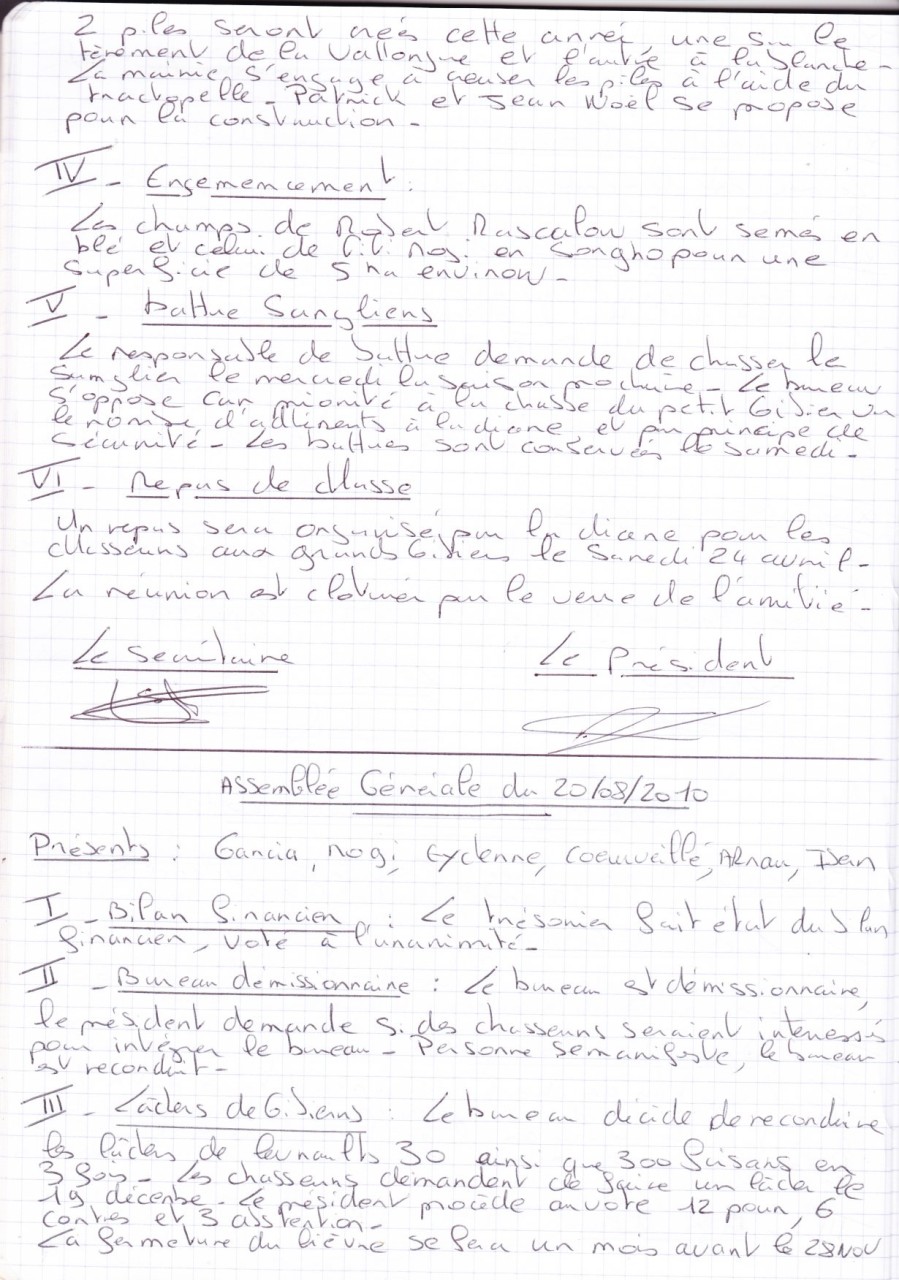 2 piles seront creés cette année une sur le
tèrèment de la Vallongue et l'autre à la Blanche -
La mairie s'engage à creuser les piles à l'aide du
tractopelle - Patrick et Jean Noël se propose
pour la construction -
IV - Ensemencement :
Les champs de Robert Rascalou sont semés en
blé et celui de Nogi en Songho pour une
superficie de 5 ha environ -
V - Battue Sangliers
Le responsable de battue demande de chasser le
Sanglier le mercredi la saison prochaine - Le bureau
s'oppose car priorité à la chasse du petit Gibier vu
le nombre d'adhérents à la diane et par principe de
sécurité - Les battues sont conservées le samedi -
VI - Repas de chasse
Un repas sera organisé par la diane pour les
chasseurs aux grands Gibiers le Samedi 24 avril -
La réunion est cloturée par le verre de l'amitié -
Le Secrétaire
Le Président
Assemblée Générale du 20/08/2010
Présents : Garcia, Nogi, Eydenne, Coeurveillé, Arnau, Jean
I - Bilan financier : Le trésorier fait état du Bilan
financier, voté à l'unanimité -
II - Bureau démissionnaire : Le bureau est démissionnaire,
le président demande si des chasseurs seraient interessés
pour intégrer le bureau - Personne se manifeste, le bureau
est reconduit -
III - Lâchers de Gibiers : Le bureau décide de reconduire
les lâchers de levrauts 30 ainsi que 300 faisans en
3 fois - Les chasseurs demandent de faire un lâcher le
19 décembre - Le président procède au vote 12 pour, 6
contres et 3 abstention -
La fermeture du lièvre se fera un mois avant le 28 NOV